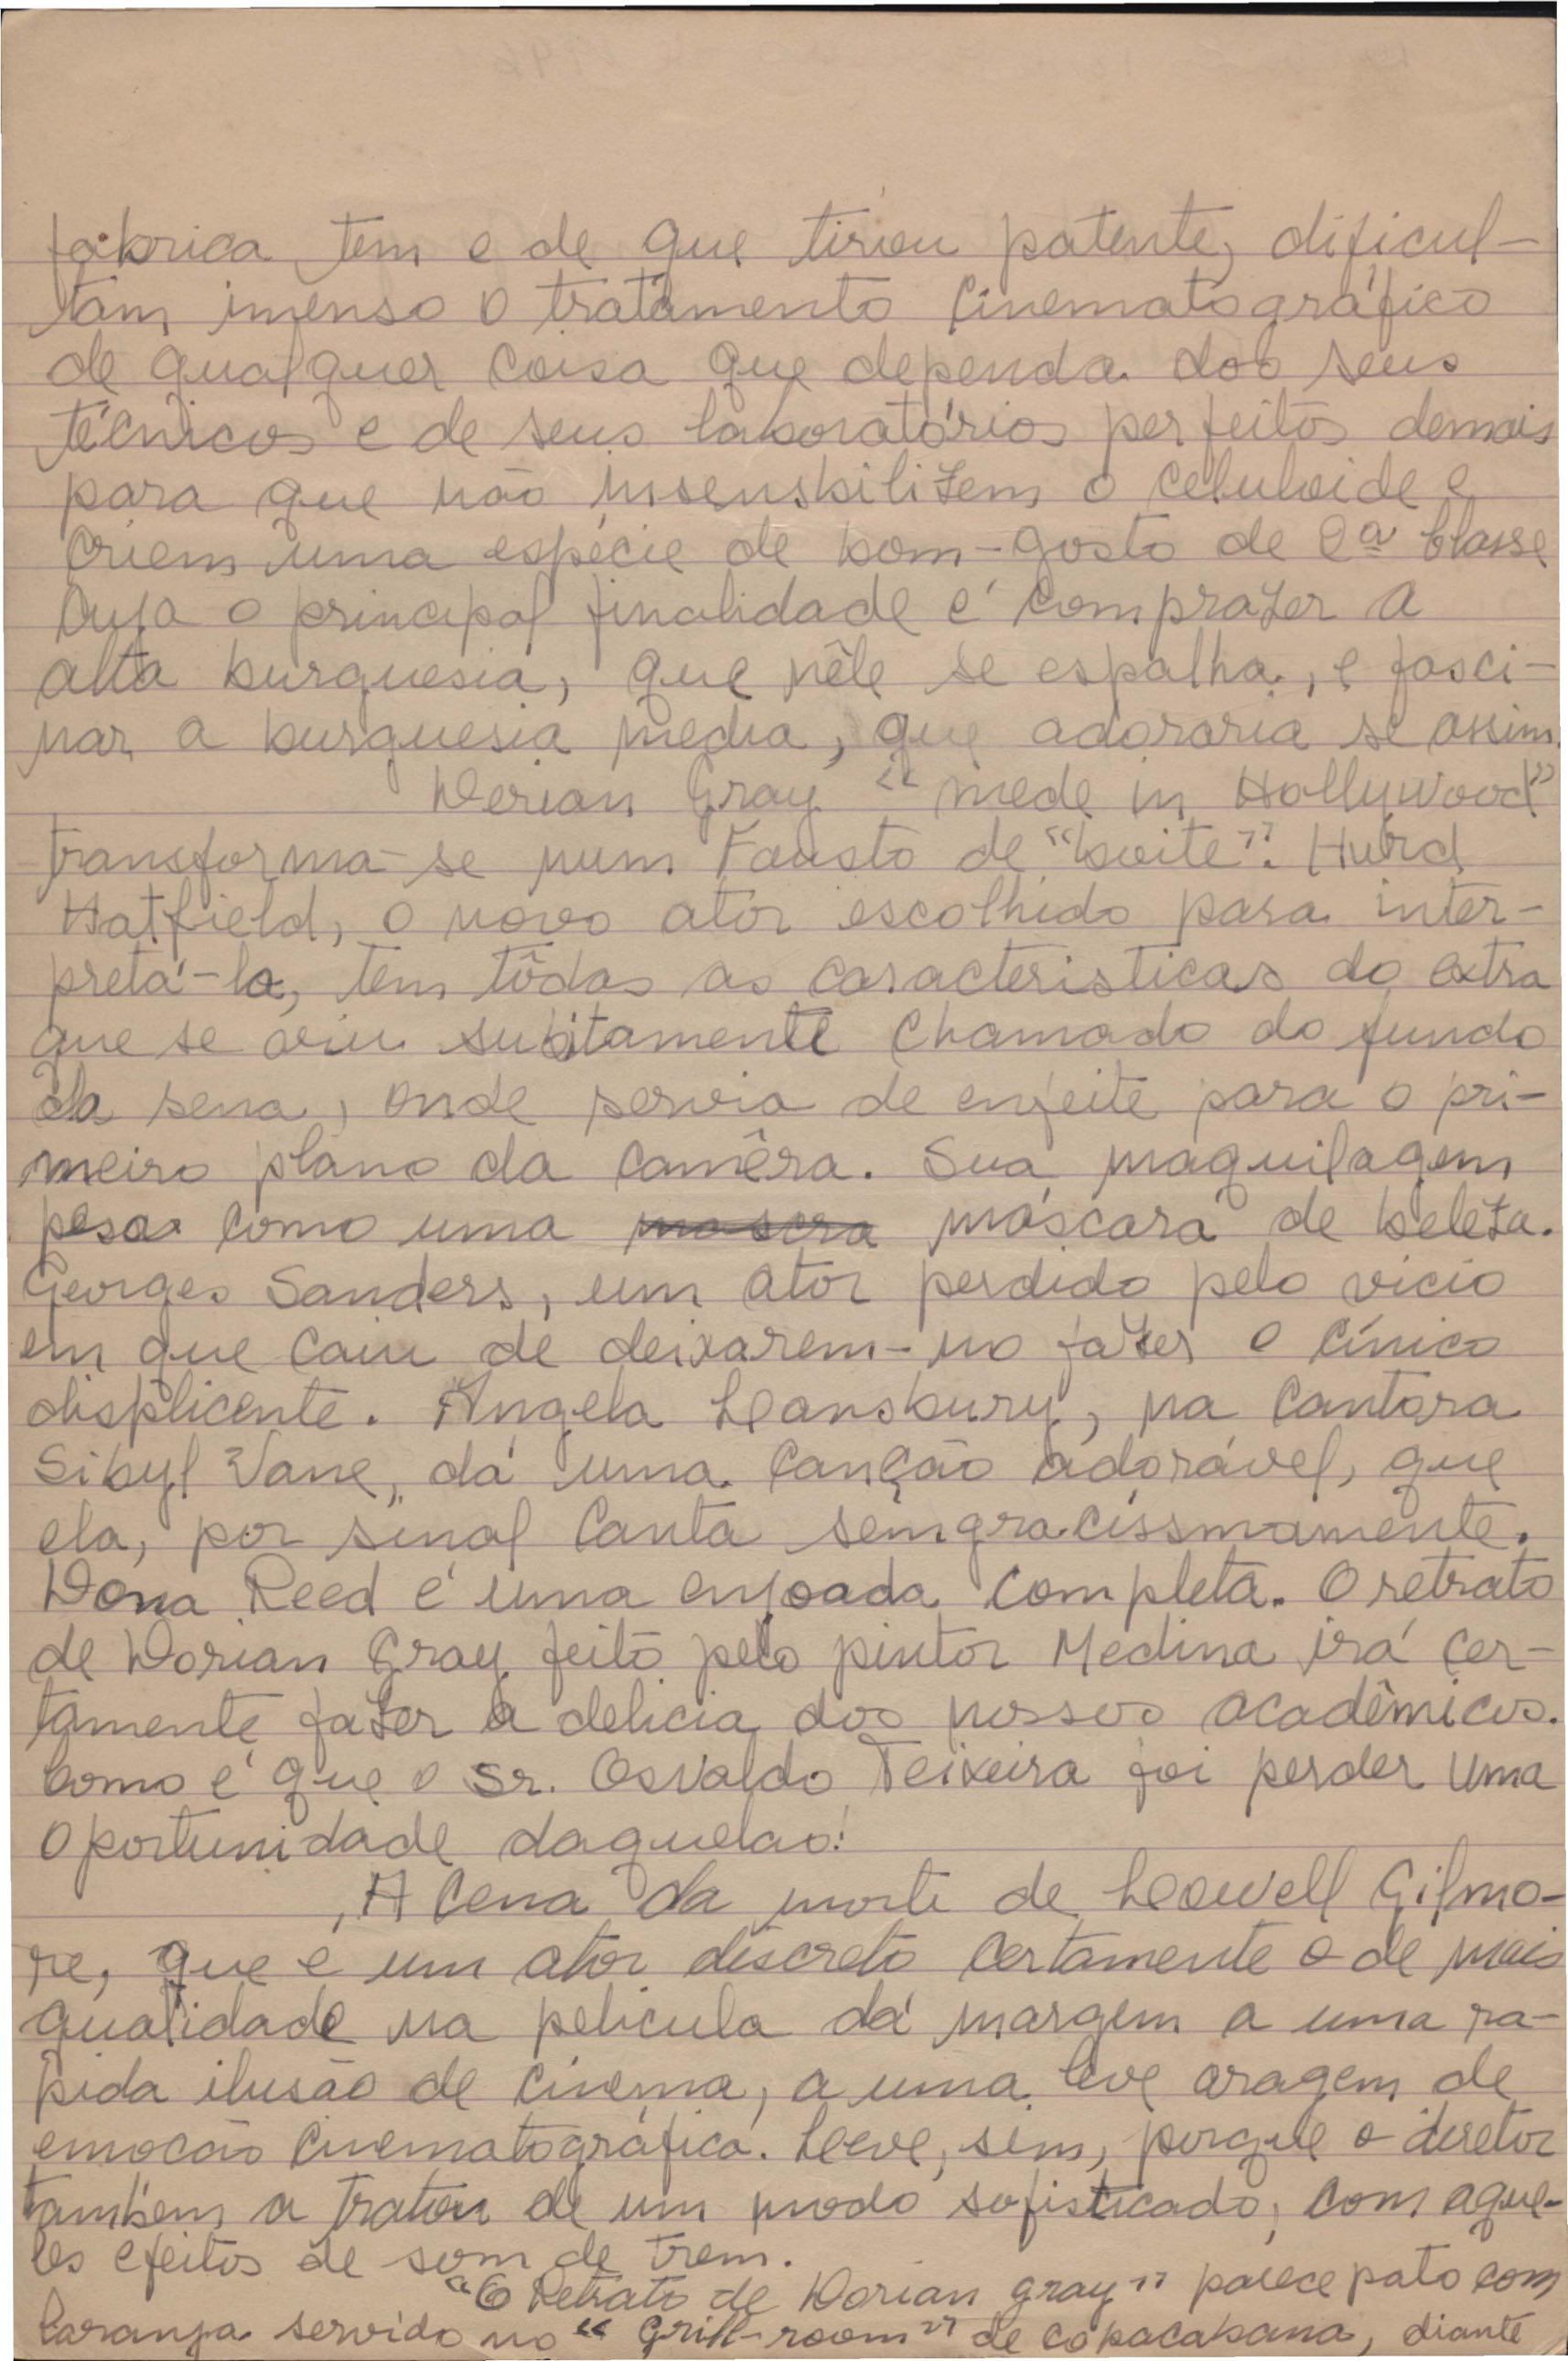 fábrica tem e de que tirou patente, dificul-
tam imenso o tratamento cinematográfico
de qualquer coisa que dependa dos seus
técnicos e de seus laboratórios perfeitos demais
para que não insensbilizem o celuloide e
criem uma espécie de bom-gosto de 2ª classe
cuja o principal finalidade é comprazer a
alta burguesia, que nêle se espalha, e fasci-
nar a burguesia media, que adoraria se assim.
Dorian Gray "mede in Hollywood"
transforma-se num Fausto de "boite". Hurd
Hatfield, o novo ator escolhido para inter-
pretá-lo, tem tôdas as caracteristicas do extra
que se viu subitamente chamado do fundo
da sena, onde servia de enfeite para o pri-
meiro plano da camêra. Sua maquilagem
pesa como uma mascra máscara de beleza.
Georges Sanders, um ator perdido pelo vicio
em que caiu de deixarem-no fazer o cínico
displicente. Angela Leansbury, na cantora
Sibyl Vane, dá uma canção adorável, que
ela, por sinal canta semgracissmamente.
Dona Reed é uma enjoada completa. O retrato
de Dorian Gray feito pelo pintor Medina irá cer-
tamente fazer a delicia dos nossos acadêmicos.
Como é que o Sr. Osvaldo Teixeira foi perder uma
oportunidade daquelas!
A cena da morte de Lowell Gilmo-
re, que é um ator discreto certamente o de mais
qualidade na pelicula dá margem a uma ra-
pida ilusão de cinema, a uma leve aragem de
emocão cinematográfica. Leve, sim, porque o diretor
também a tratou de um modo sofisticado, com aque-
les efeitos de som de trem.
"O Retrato de Dorian Gray" parece pato com
laranja servido no "Grill-room" de Copacabana, diante